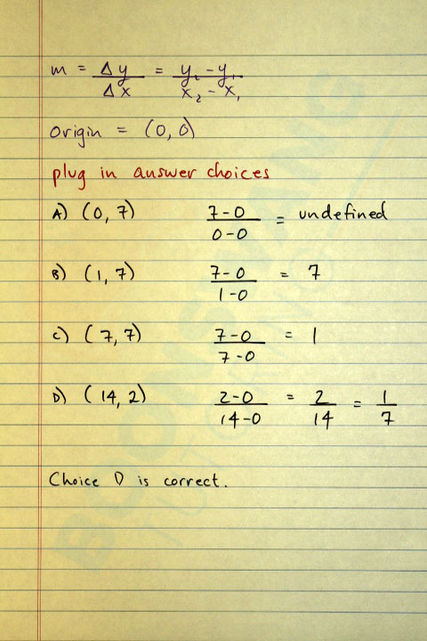 m = Δy / Δx = y₂ - y₁ / x₂ - x₁
origin = (0, 0)
plug in answer choices
A) (0, 7) 7-0 / 0-0 = undefined
B) (1, 7) 7-0 / 1-0 = 7
C) (7, 7) 7-0 / 7-0 = 1
D) (14, 2) 2-0 / 14-0 = 2 / 14 = 1 / 7
Choice D is correct.